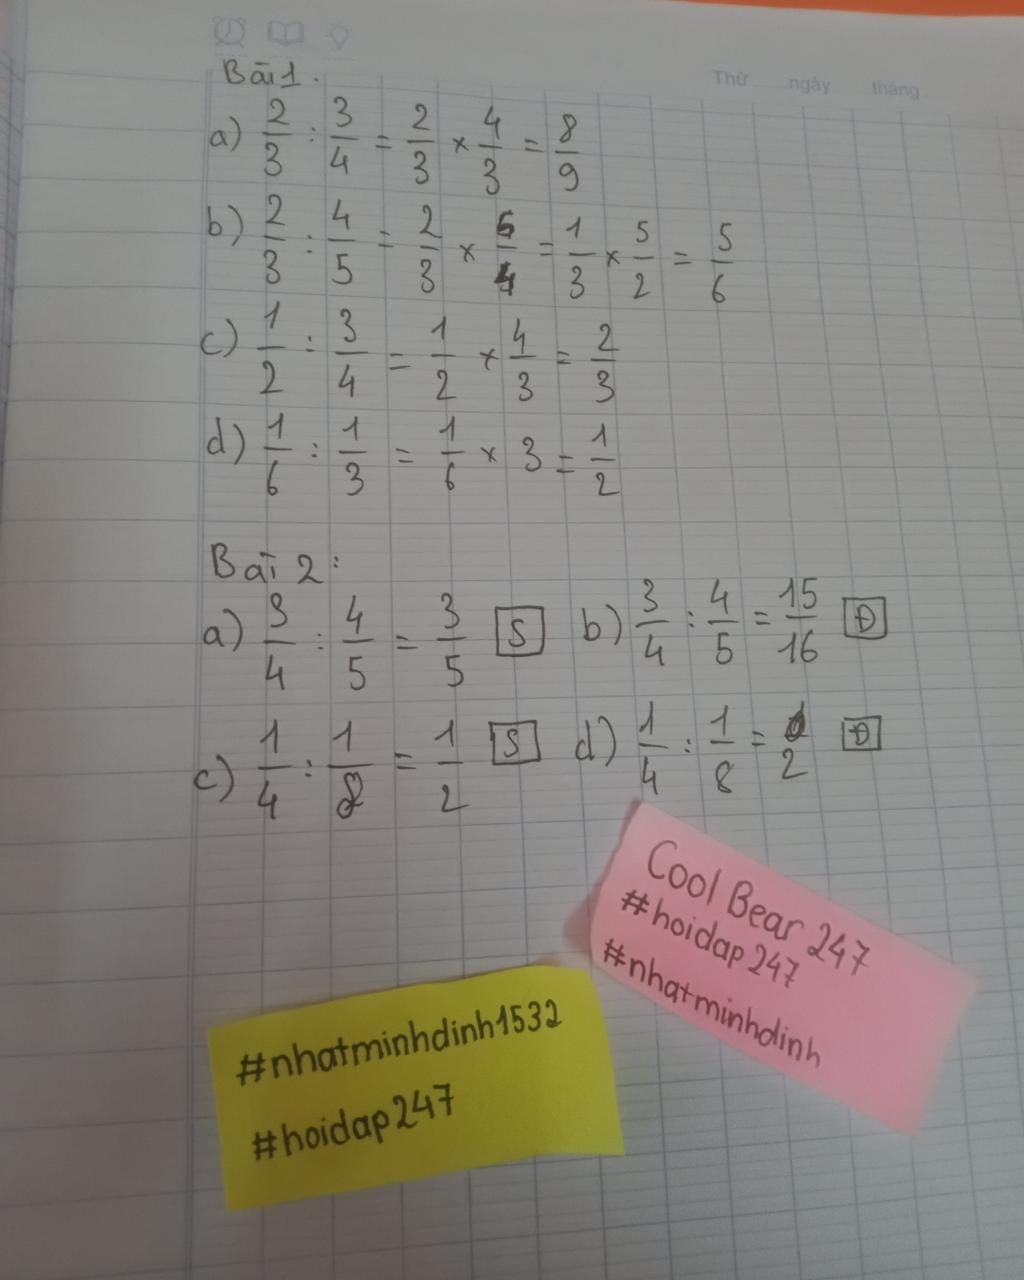 Thứ ngày tháng
Bài 1.
a) 2/3 : 3/4 = 2/3 × 4/3 = 8/9
b) 2/3 : 4/5 = 2/3 × 5/4 = 1/3 × 5/2 = 5/6
c) 1/2 : 3/4 = 1/2 × 4/3 = 2/3
d) 1/6 : 1/3 = 1/6 × 3 = 1/2
Bài 2:
a) 3/4 : 4/5 = 3/5 S b) 3/4 : 4/5 = 15/16 Đ
c) 1/4 : 1/8 = 1/2 S d) 1/4 : 1/8 = 2 Đ
Cool Bear 247
#hoidap247
#nhatminhdinh
#nhatminhdinh1532
#hoidap247